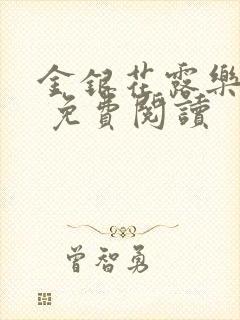 金銀花露樂
免費閱讀
曾智勇